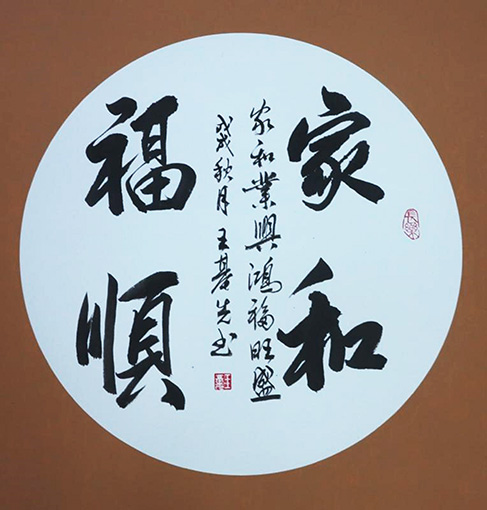 家和
家和業興鴻福旺盛
戊戌秋月王基先书
福順